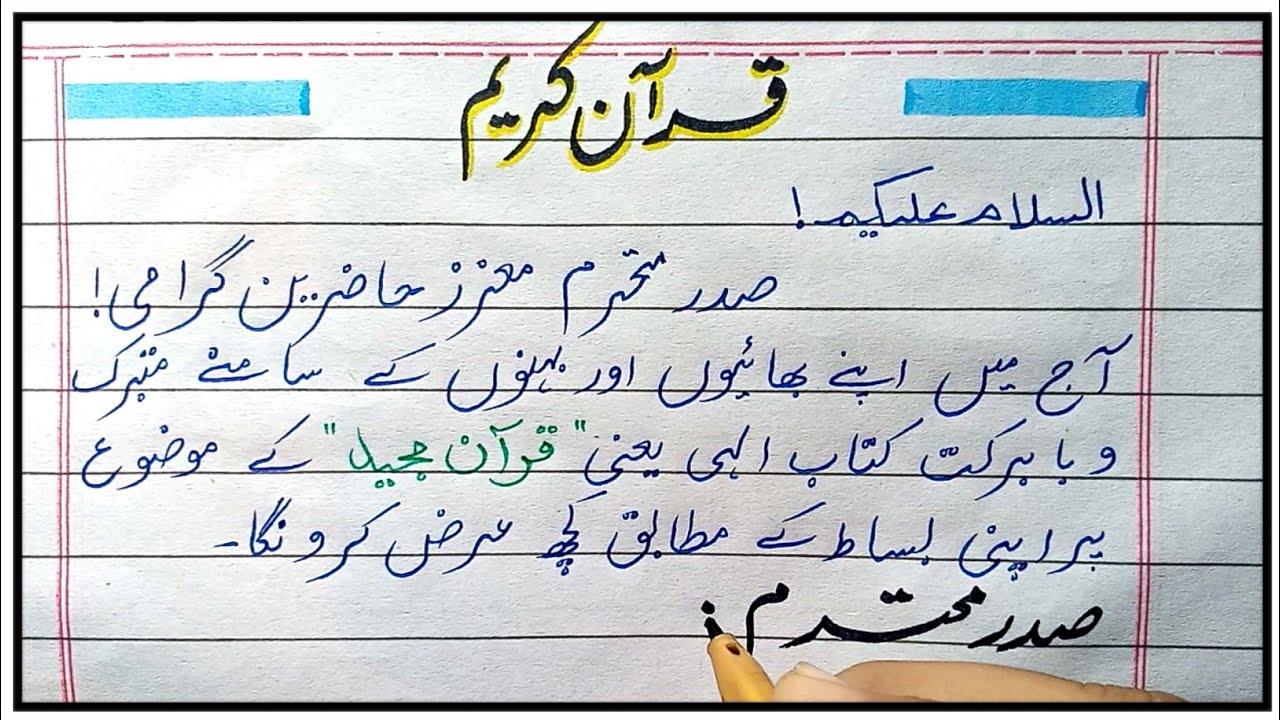 قرآن کریم
السلام علیکم!
صدر محترم معزز حاضرین گرامی!
آج میں اپنے بھائیوں اور بہنوں کے سامنے متبرک
و بابرکت کتاب الہی یعنی "قرآن مجید" کے موضوع
پر اپنی بساط کے مطابق کچھ عرض کرونگا۔
صدر محترم!